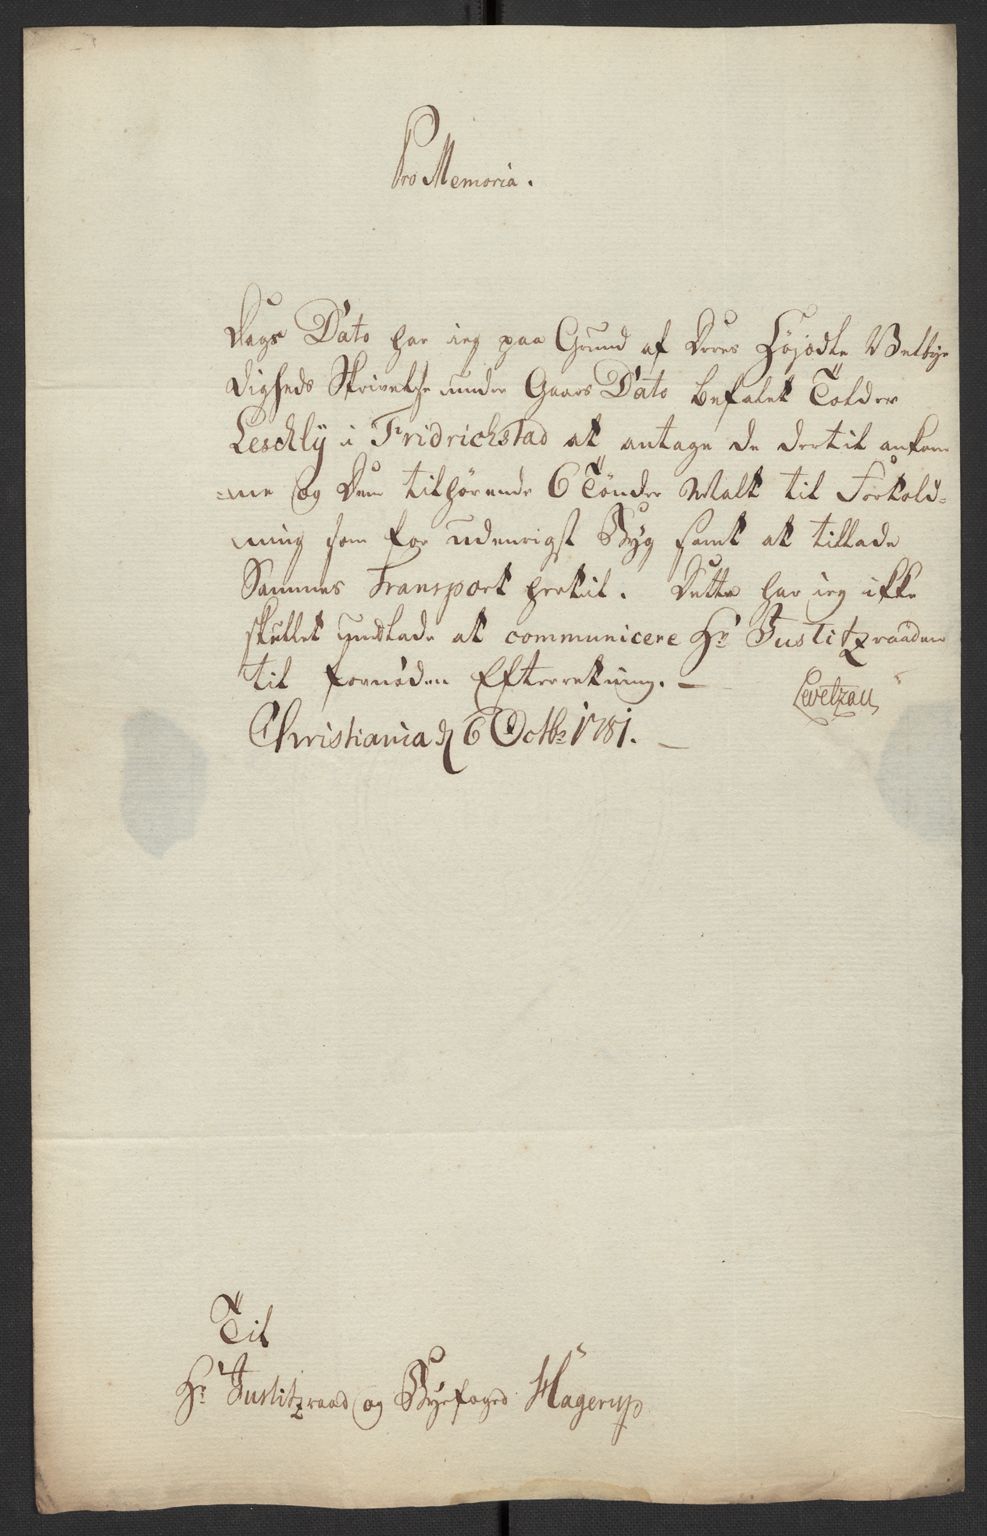 Pro Memoria.
Dags Dato har ieg paa Grund af Deres Høyædle Velbyr
digheds Skrivelse under Gaars Dato befalet Tolder
Leschly i Fridrichstad at antage de dertil ankom
=ne og Dem tilhørende 6 Tønder Malt til Fortold=
=ning som for udenrigst Byg samt at tillade
Sammes Transport hertil. Dette har ieg ikke
skullet undlade at communicere Hr Justitzraaden
til fornøden Efterretning. —
Levetzau
Christiania d 6 Octbr 1781. —
Til
Hr Justitzraad og Byefoged Hagerup